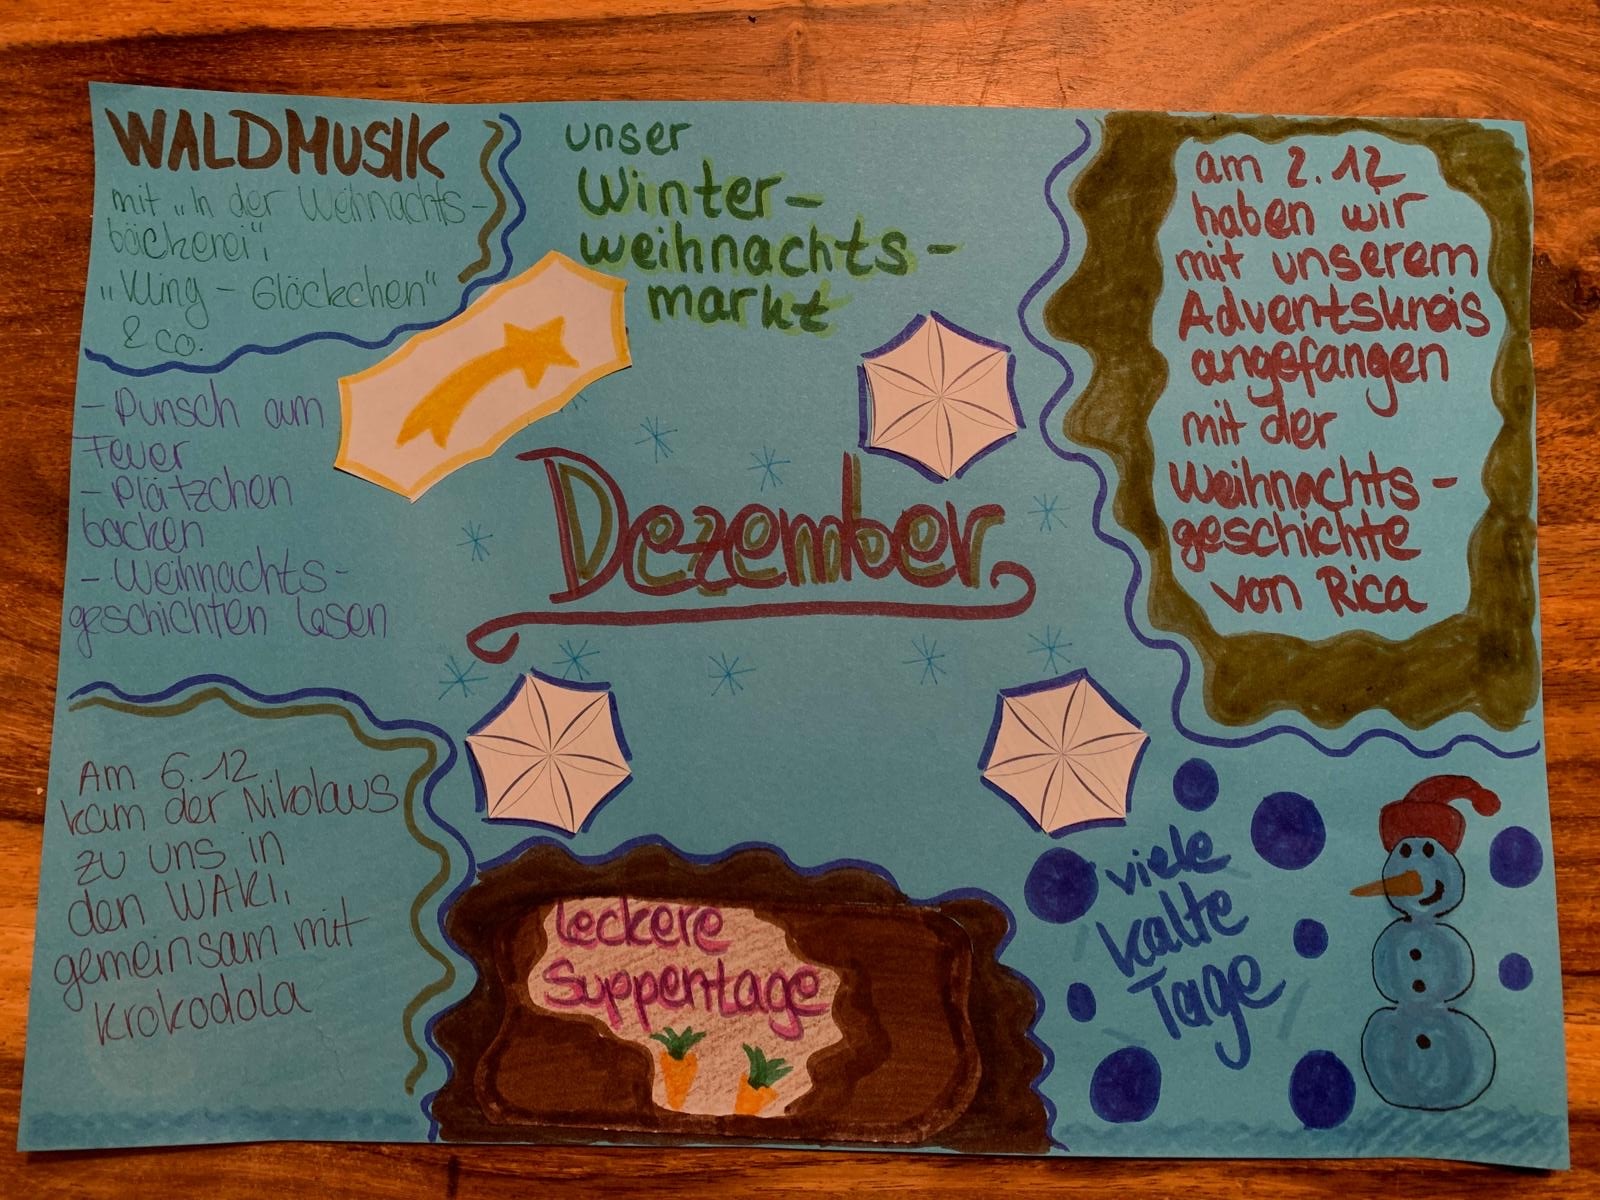 WALDMUSIK
mit „In der Weihnachts-
bäckerei",
„Kling - Glöckchen"
& co.
unser
Winter-
weihnachts-
markt
am 2.12
haben wir
mit unserem
Adventskreis
angefangen
mit der
Weihnachts-
geschichte
von Rica
- Punsch am
Feuer
- Plätzchen
backen
- Weihnachts-
geschichten lesen
Dezember
Am 6.12
kam der Nikolaus
zu uns in
den WAKI,
gemeinsam mit
Krokodola
leckere
Suppentage
viele
kalte
Tage